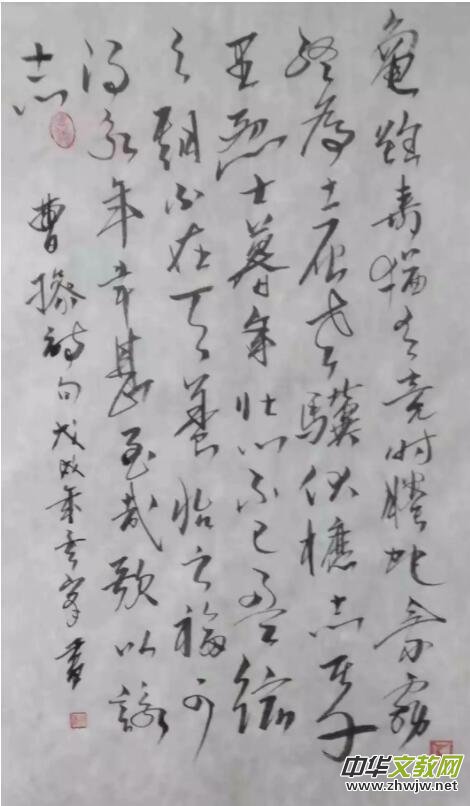 龜雖壽猶有竟时騰蛇乘霧
终為土灰老驥伏櫪志在千
里烈士暮年壮心不已盈缩
之期不在天養怡之福可
得永年幸甚至哉歌以詠
志
曹操詩句戊戌年書
中华文教网
www.zhwjw.net